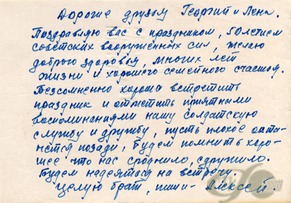 Дорогие друзья Георгий и Лена.
Поздравляю вас с праздником, 60летием
советских вооруженных сил, желаю
доброго здоровья, многих лет
жизни и хорошего семейного счастья.
Безусловно хорошо встретить
праздник и отметить приятными
воспоминаниями нашу солдатскую
службу и дружбу, пусть плохое оста-
нется позади, будем помнить хоро-
шее что нас сроднило, сдружило.
Будем надеяться на встречу.
Целую брат, пиши – Алексей.